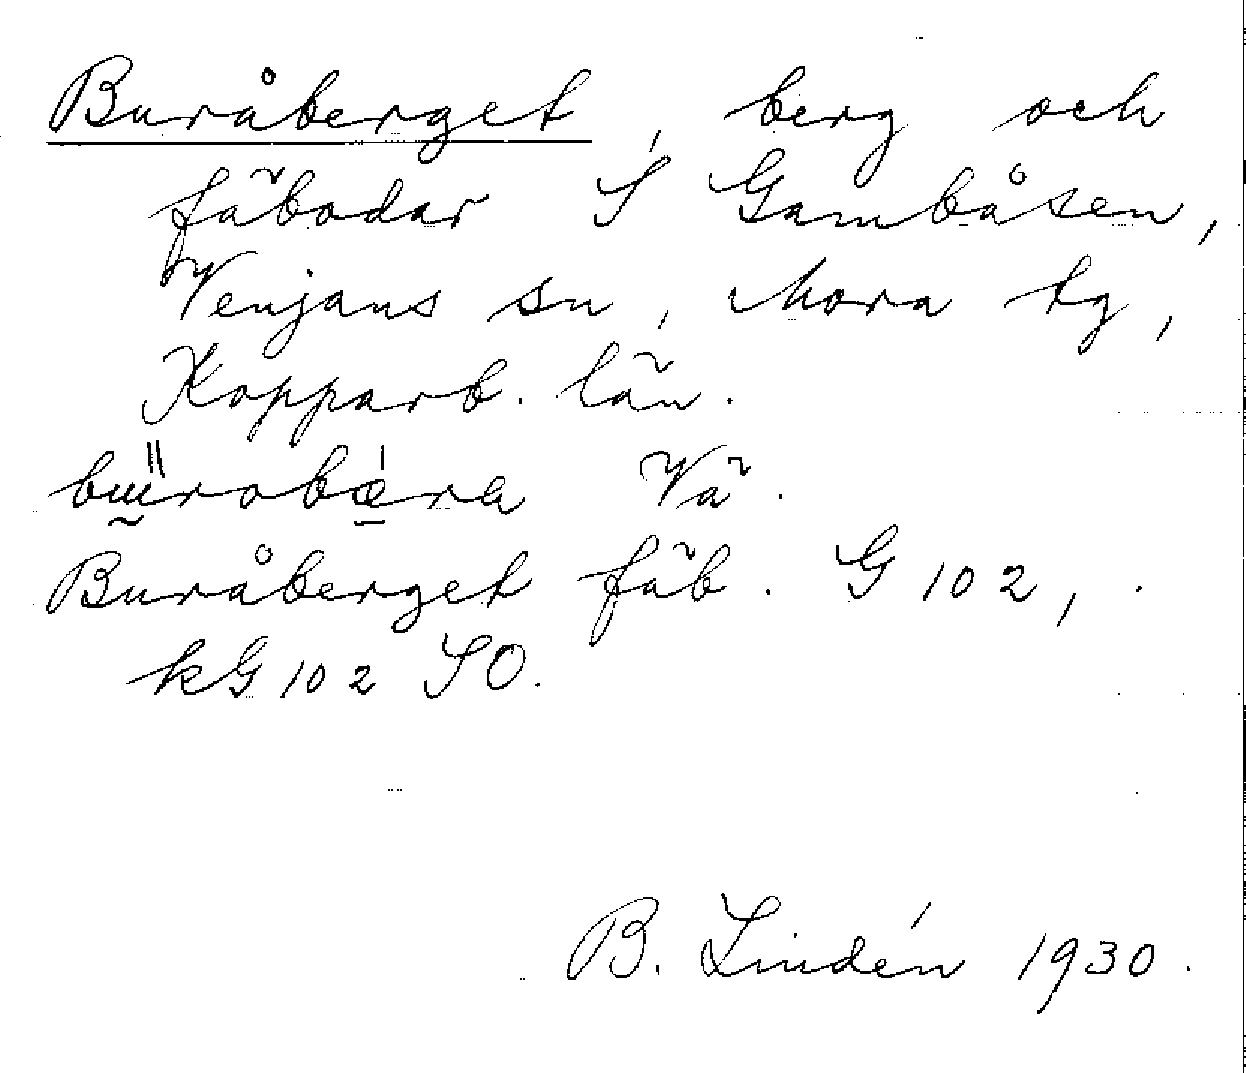 Buråberget, berg och
fäbodar S Gambåsen,
Venjans sn, Mora tg,
Kopparb. län.
bɯ̰̋robǽ̱ra Vä.
Buråberget fäb. G 102,
kG 102 SO.
B. Lindén 1930.